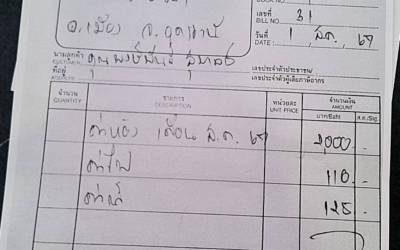 อ.เมือง จ.อุดรธานี
เลขที่ 31
BILL NO.
วันที่ 1 ส.ค. 67
DATE :
นามลูกค้า คุณ
CUSTOMER
ที่อยู่
ADDRESS
เลขประจำตัวประชาชน/
เลขประจำตัวผู้เสียภาษีอากร
จำนวน รายการ หน่วยละ จำนวนเงิน
QUANTITY DESCRIPTION UNIT PRICE AMOUNT
บาท/Baht ส.ต./Stg.
ค่าห้อง เดือน ส.ค. 67 2,000 -
ค่าไฟ 110 -
ค่าน้ำ 125 -